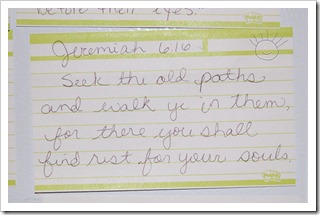 before their eyes."
Jeremiah 6:16
Seek the old paths
and walk ye in them,
for there you shall
find rest for your souls,